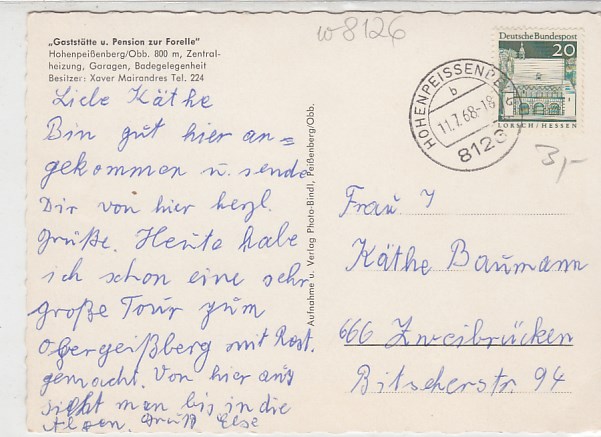 „Gaststätte u. Pension zur Forelle"
Hohenpeißenberg/Obb. 800 m, Zentral-
heizung, Garagen, Badegelegenheit
Besitzer: Xaver Mairandres Tel. 224
Liebe Käthe
Bin gut hier an=
gekommen u. sende
Dir von hier herzl.
Grüße. Heute habe
ich schon eine sehr
große Tour zum
mit Rast.
gemacht. Von hier aus
sieht man bis in die
Alpen. Gruß Else
Aufnahme u. Verlag Photo-Bindl, Peißenberg/Obb.
w8126
Deutsche Bundespost
20
LORSCH/HESSEN
HOHENPEISSENBE
b
11.7.68-18
8126
3,-
Frau
Käthe Baumann
666 Zweibrücken
Bitscherstr. 94